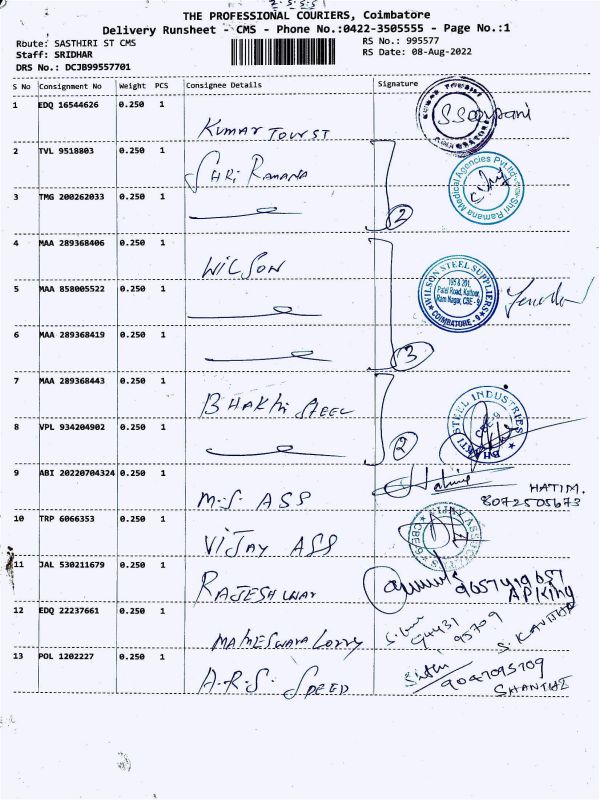 THE PROFESSIONAL COURIERS, Coimbatore
Delivery Runsheet - CMS - Phone No.:0422-3505555 - Page No.:1
Route: SASTHIRI ST CMS
RS No.: 995577
Staff: SRIDHAR
RS Date: 08-Aug-2022
DRS No.: DCJB99557701
S No Consignment No Weight PCS Consignee Details Signature
1 EDQ 16544626 0.250 1
KUMAR TOURST
2 TVL 9518803 0.250 1
SHRI RAMANA
Shri Ramana Medical Agencies Pvt.Ltd
3 TMG 200262033 0.250 1
2
4 MAA 289368406 0.250 1
WILSON
WILSON STEEL SUPPLIERS
Patel Road, Kattoor,
Ram Nagar, CBE - 9
COIMBATORE - 9
5 MAA 858005522 0.250 1
6 MAA 289368419 0.250 1
3
7 MAA 289368443 0.250 1
BHAKTHI STEEL
BHAKTI STEEL INDUSTRIES
CBE-9
8 VPL 934204902 0.250 1
2
9 ABI 20220704324 0.250 1
M.S. ASS
HATIM.
8072505673
10 TRP 6066353 0.250 1
VIJAY ASS
11 JAL 530211679 0.250 1
RAJESHWAR
9657419657
AP King
12 EDQ 22237661 0.250 1
MAHESWARA LORRY
94431
95709
S. KAVITHA
13 POL 1202227 0.250 1
A.R.S. SPEED
9047095709
SHANTHI